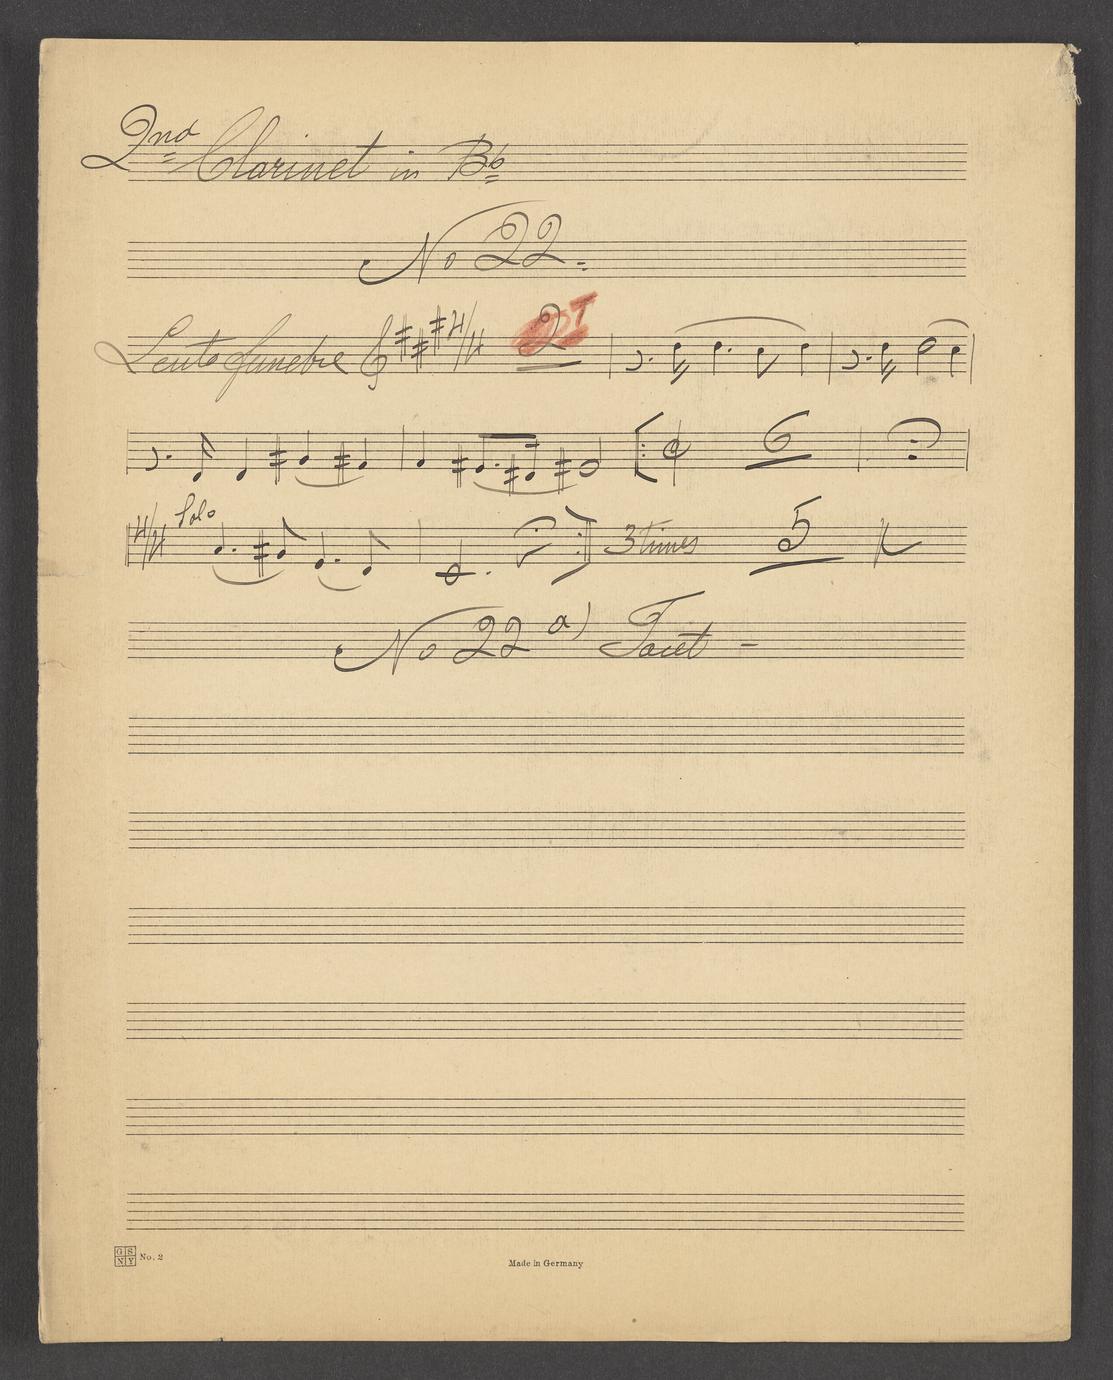 2nd Clarinet in Bb
No 22
Lento funebre 4/4 2
6
4/4 Solo 3 times 5
No 22 a) Tacet -
GSNY No. 2
Made in Germany